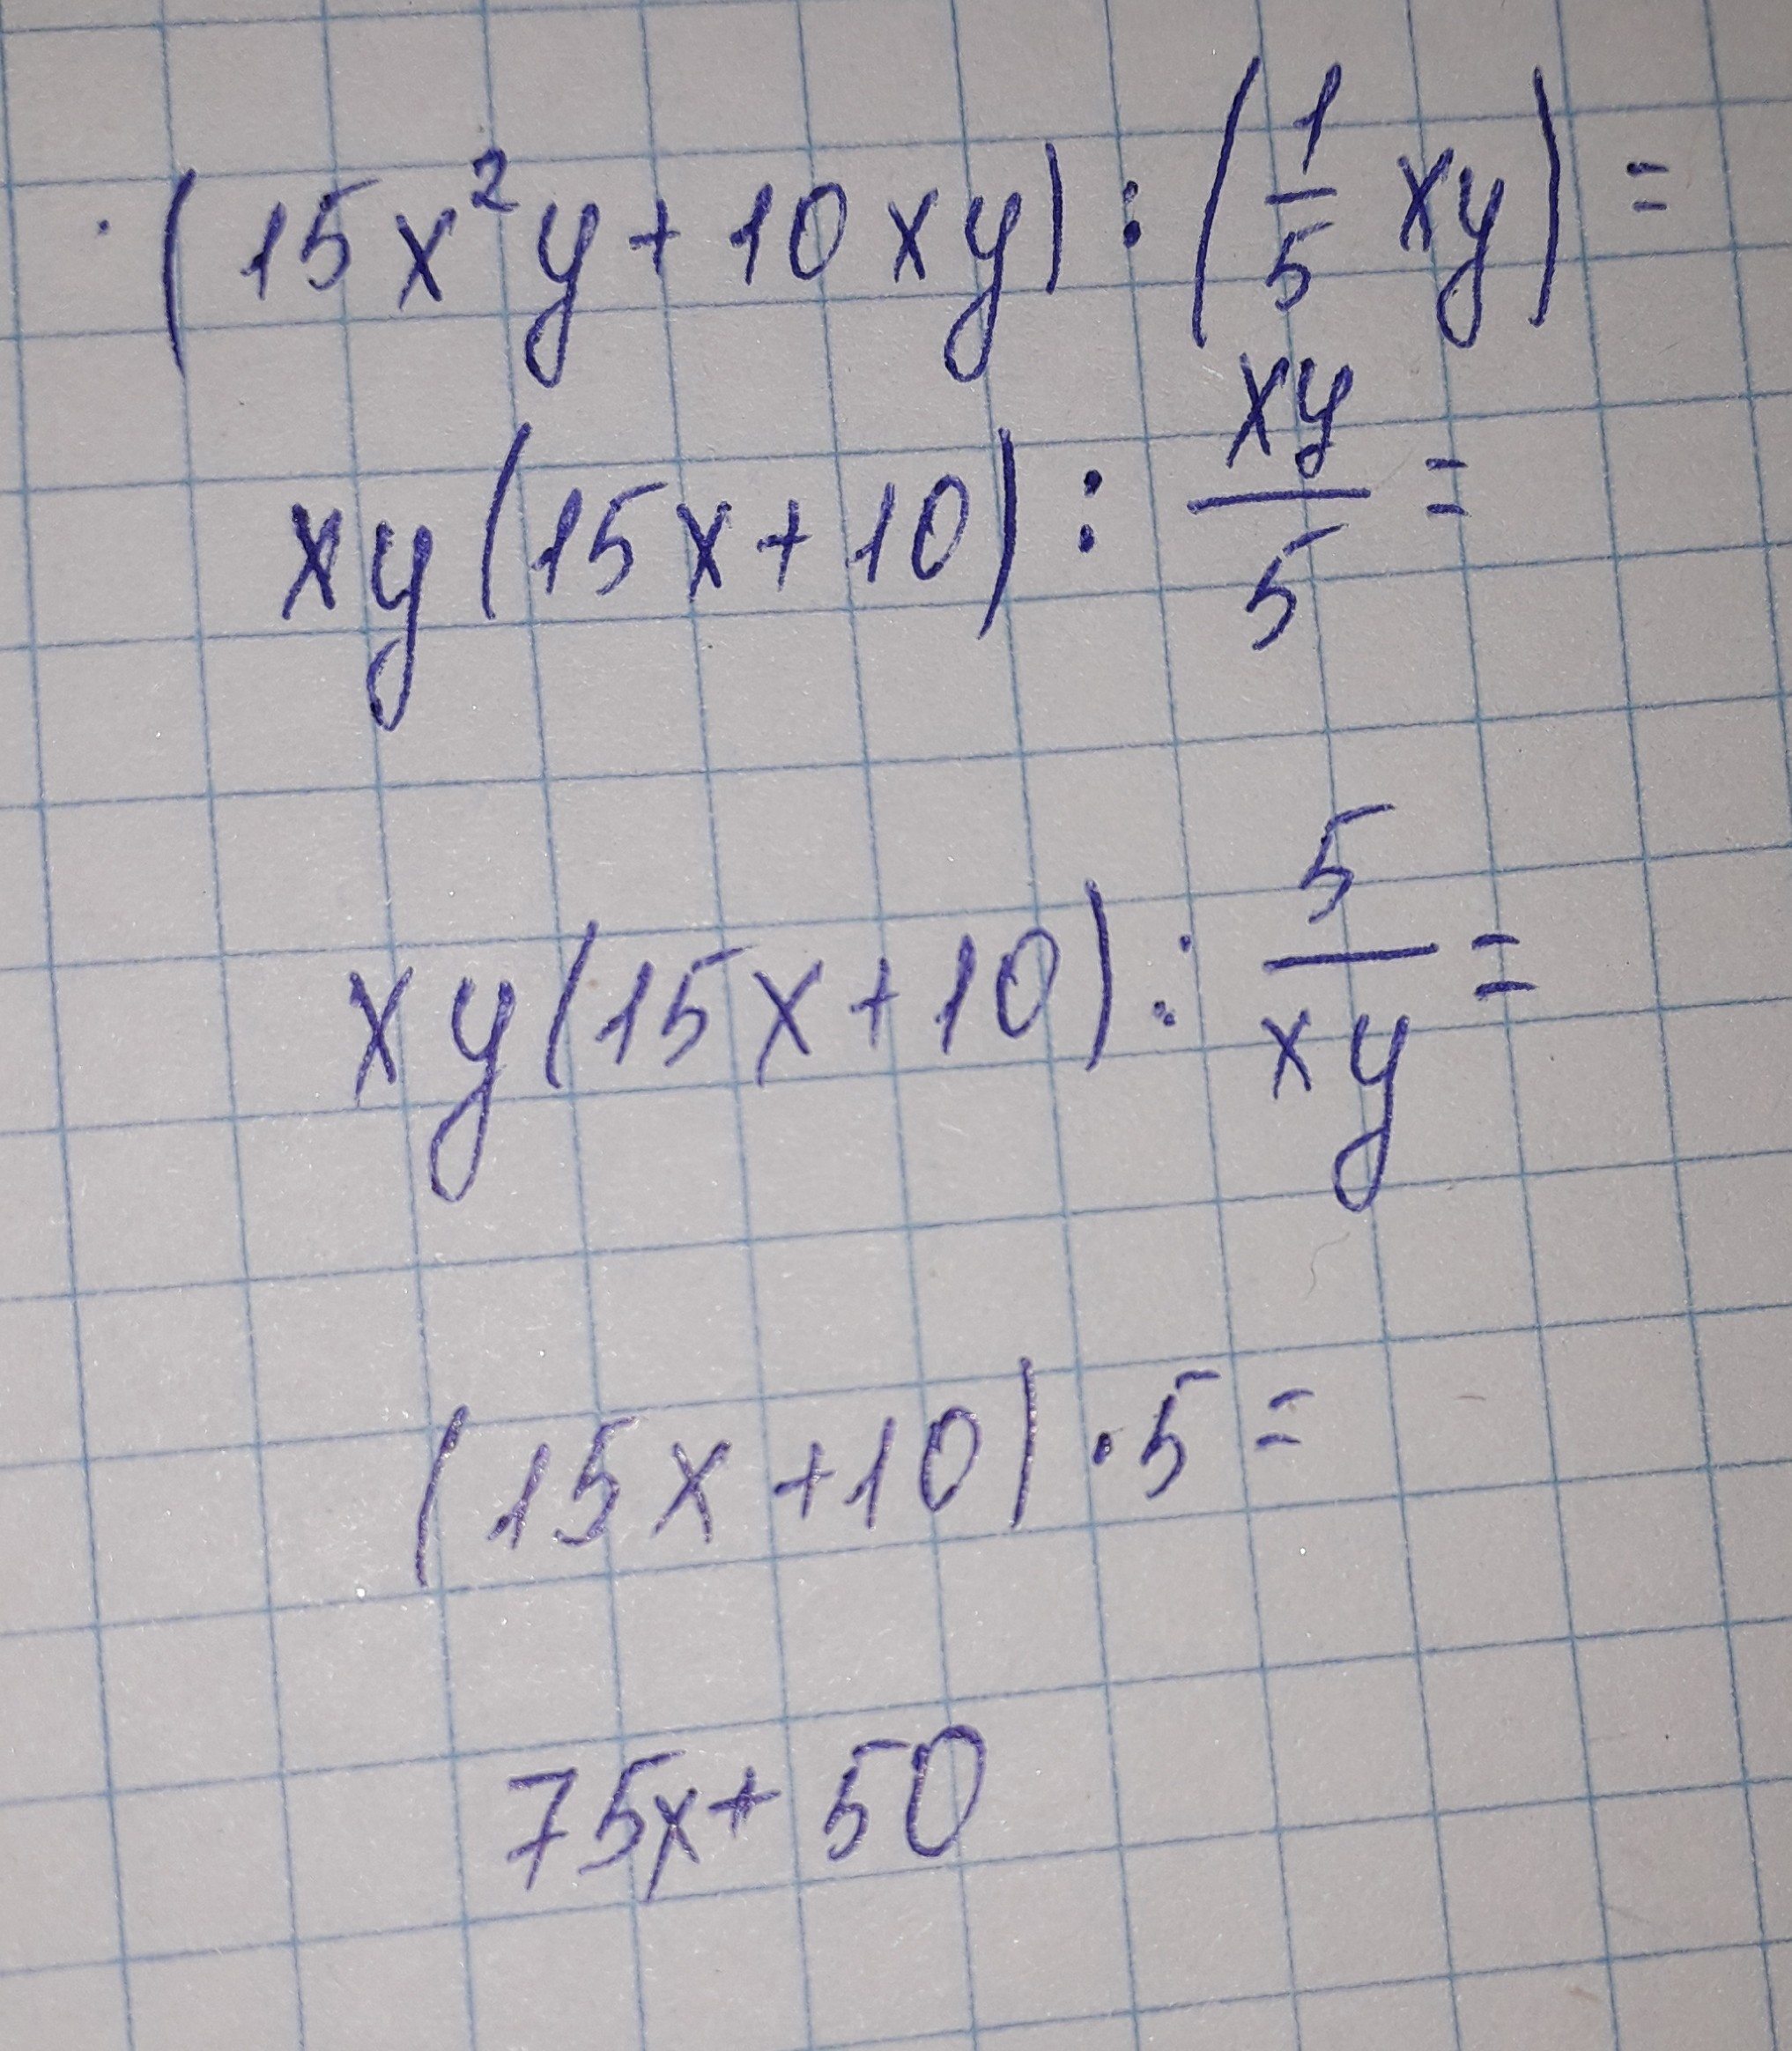 (15x²y+10xy):(1/5 xy)=
xy(15x+10):xy/5=
xy(15x+10):5/xy=
(15x+10)·5=
75x+50